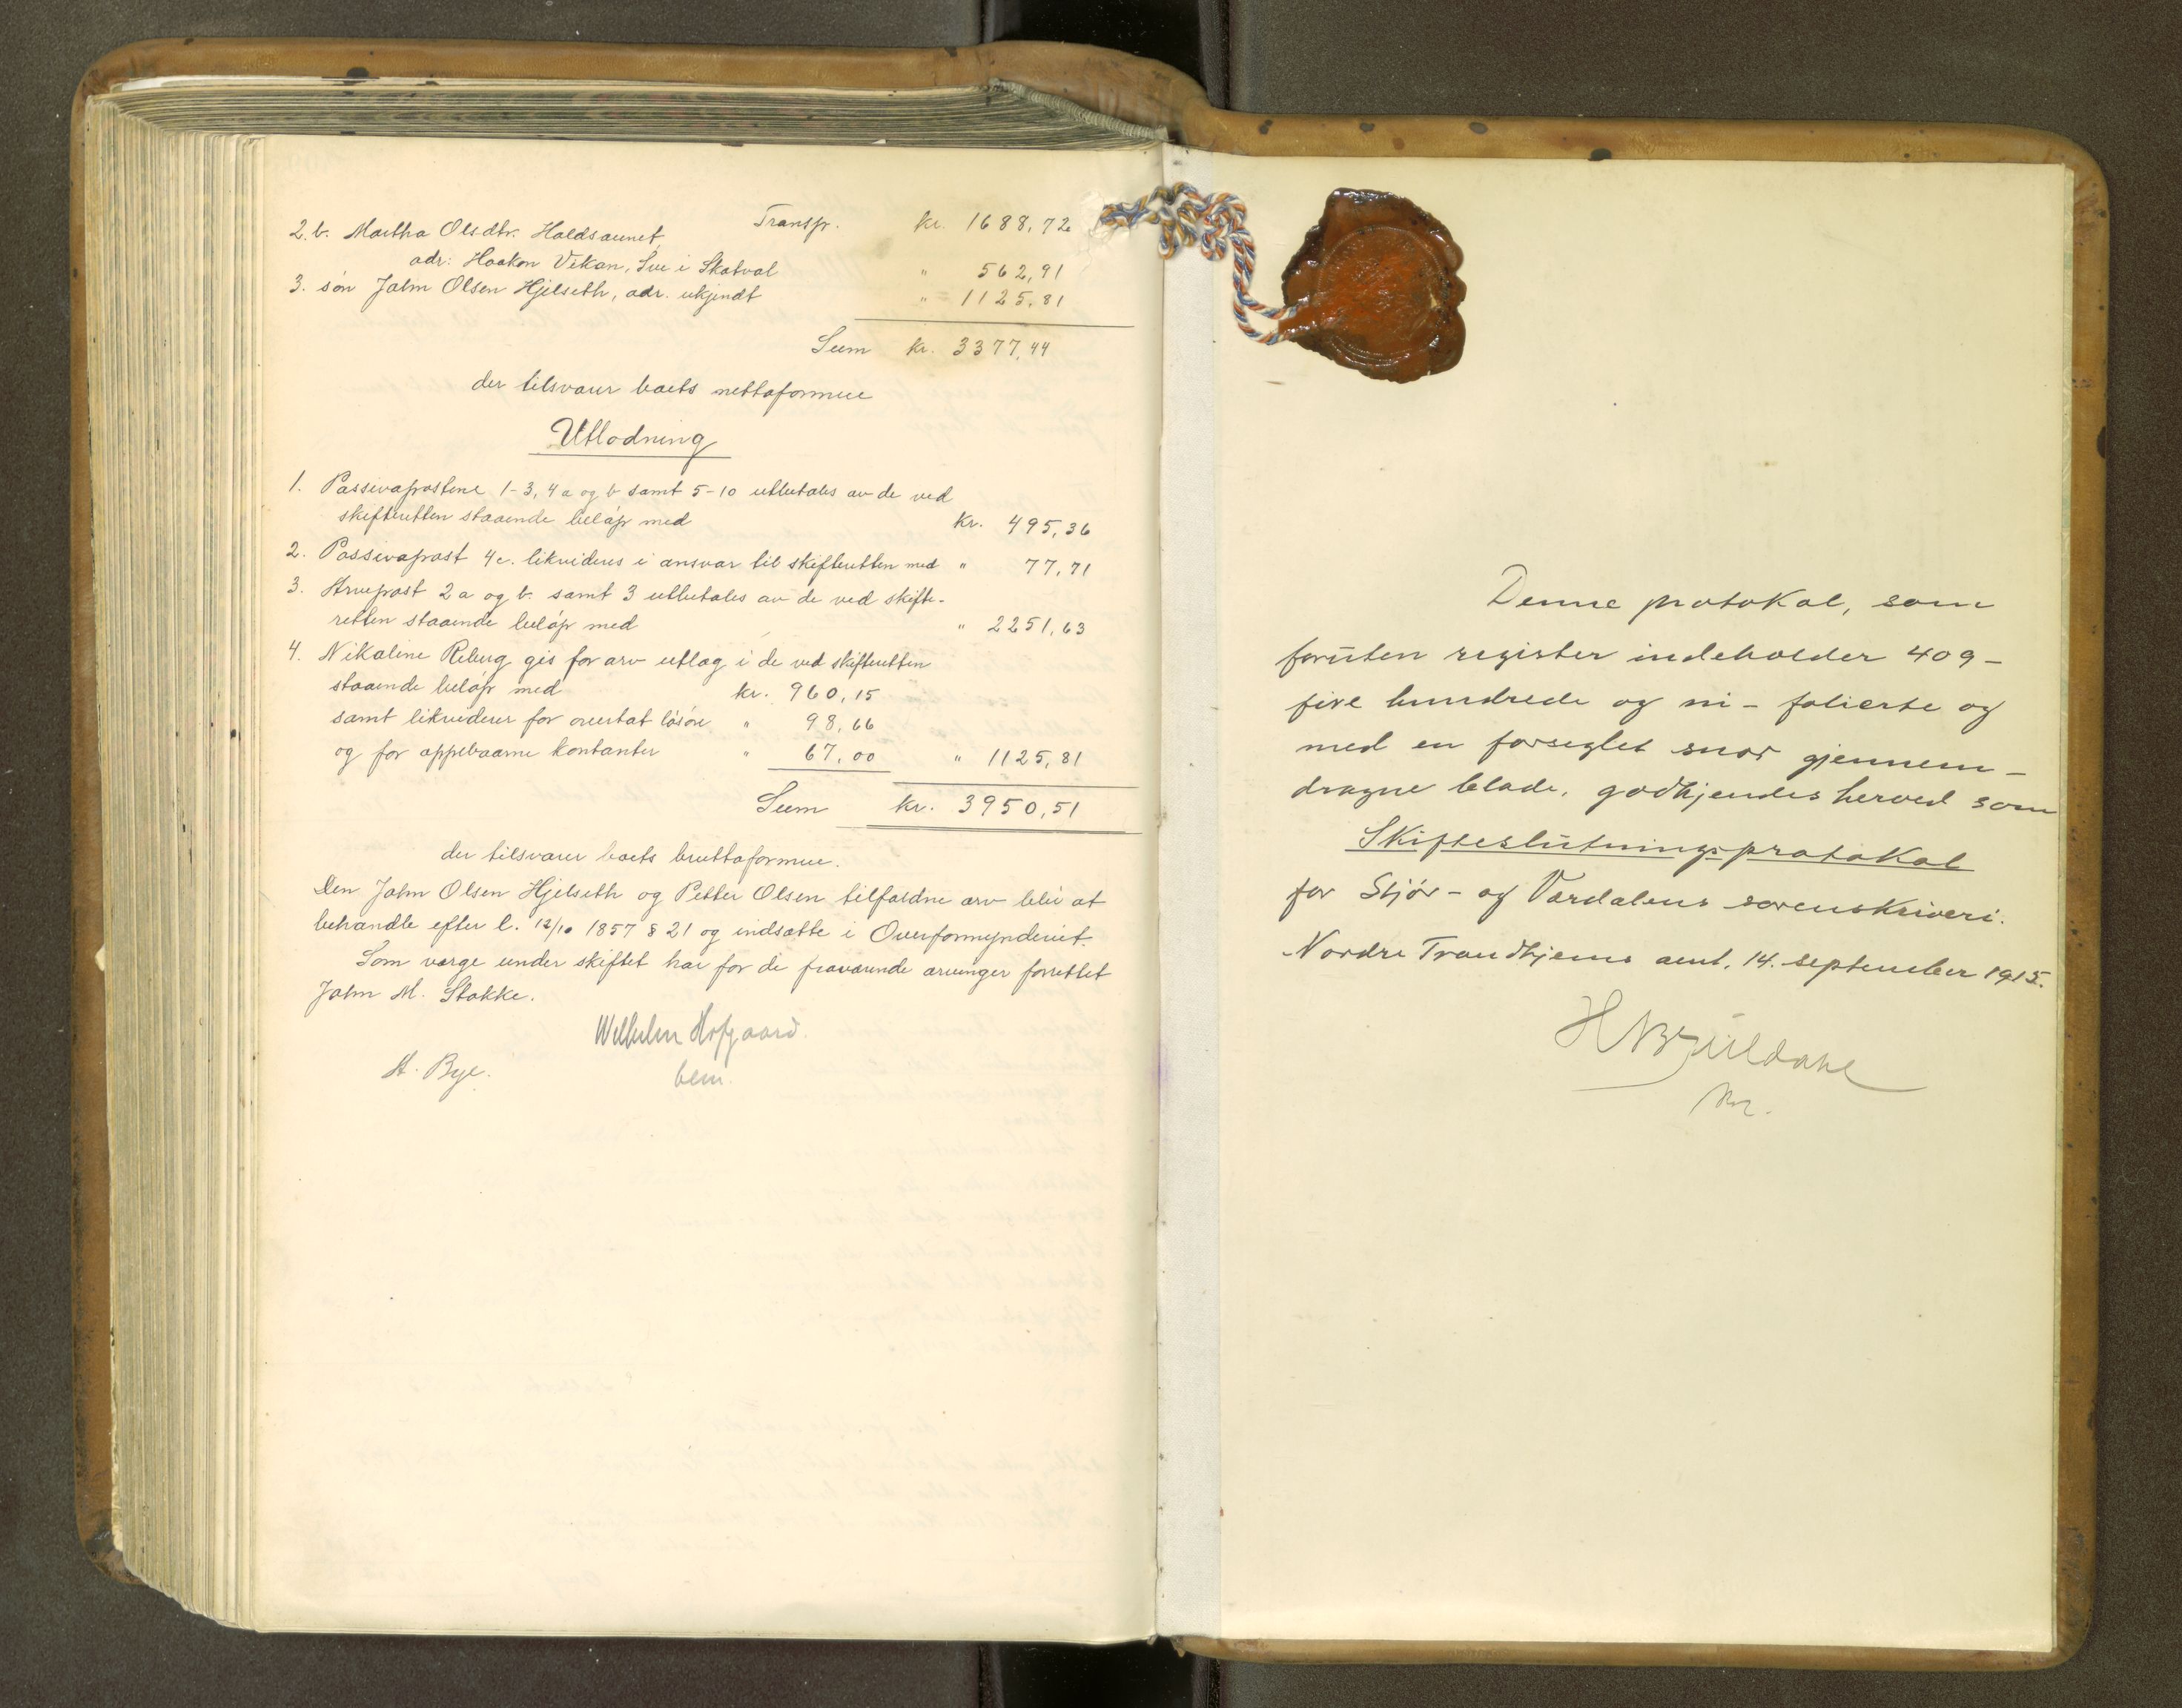 Transp. kr. 1688,72
2.b. Martha Olsdtr. Haldsaunet,
adr: Haakon Vikan, Sve i Skatval " 562,91
3. søn John Olsen Hjelseth, adr. ukjendt " 1125,81
Sum kr. 3377,44
der tilsvarer boets nettoformue
Utlodning
1. Passivapostene 1-3, 4a og b samt 5-10 utbetales av de ved
skifteretten staaende beløp med kr. 495,36
2. Passivapost 4c. likvideres i ansvar til skifteretten med " 77,71
3. Arvepost 2a og b. samt 3 utbetales av de ved skifte-
retten staaende beløp med " 2251,63
4. Nikoline Reberg gis for arv utlæg i de ved skifteretten
staaende beløp med kr. 960,15
samt likviderer for overtat løsøre " 98,66
og for oppebaarne kontanter " 67,00 " 1125,81
Sum kr. 3950,51
der tilsvarer boets bruttoformue.
Den John Olsen Hjelseth og Petter Olsen tilfaldne arv blir at
behandle efter l. 12/10 1857 § 21 og indsætte i Overformynderiet.
Som verge under skiftet har for de fraværende arvinger forrettet
John M. Stokke.
Wilhelm Hofgaard
bem.
A. Bye.
Denne protokol, som
foruten register indeholder 409 -
fire hundrede og ni - folierte og
med en forseglet snor gjennem-
dragne blade, godkjendes herved som
Skifteslutningsprotokol
for Stjør- og Værdalens sorenskriveri.
Nordre Trondhjems amt, 14. september 1915.